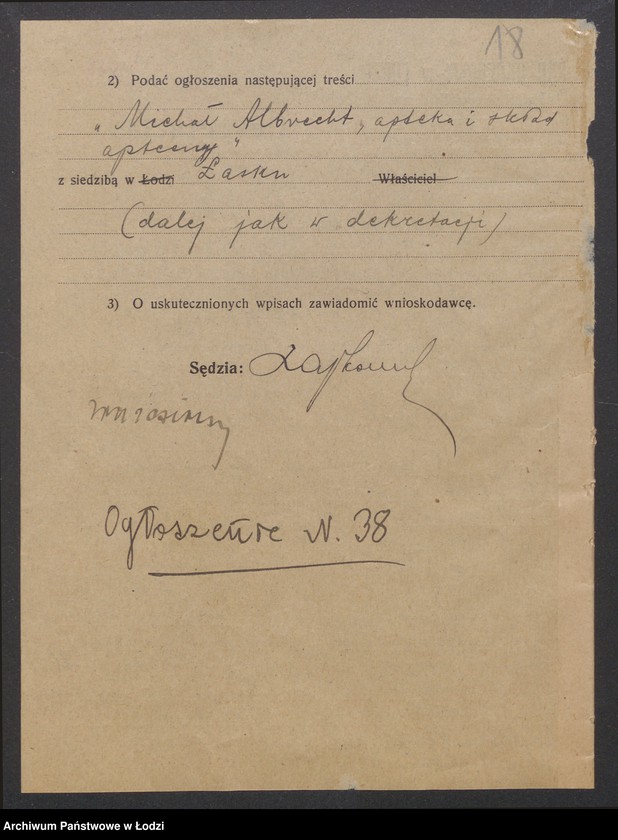 18
2) Podać ogłoszenia następującej treści
„Michał Albrecht, apteka i skład
apteczny"
z siedzibą w Łodzi Łasku Właściciel
(dalej jak w dekretacji)
3) O uskutecznionych wpisach zawiadomić wnioskodawcę.
Sędzia:
Ogłoszenie N. 38
Archiwum Państwowe w Łodzi